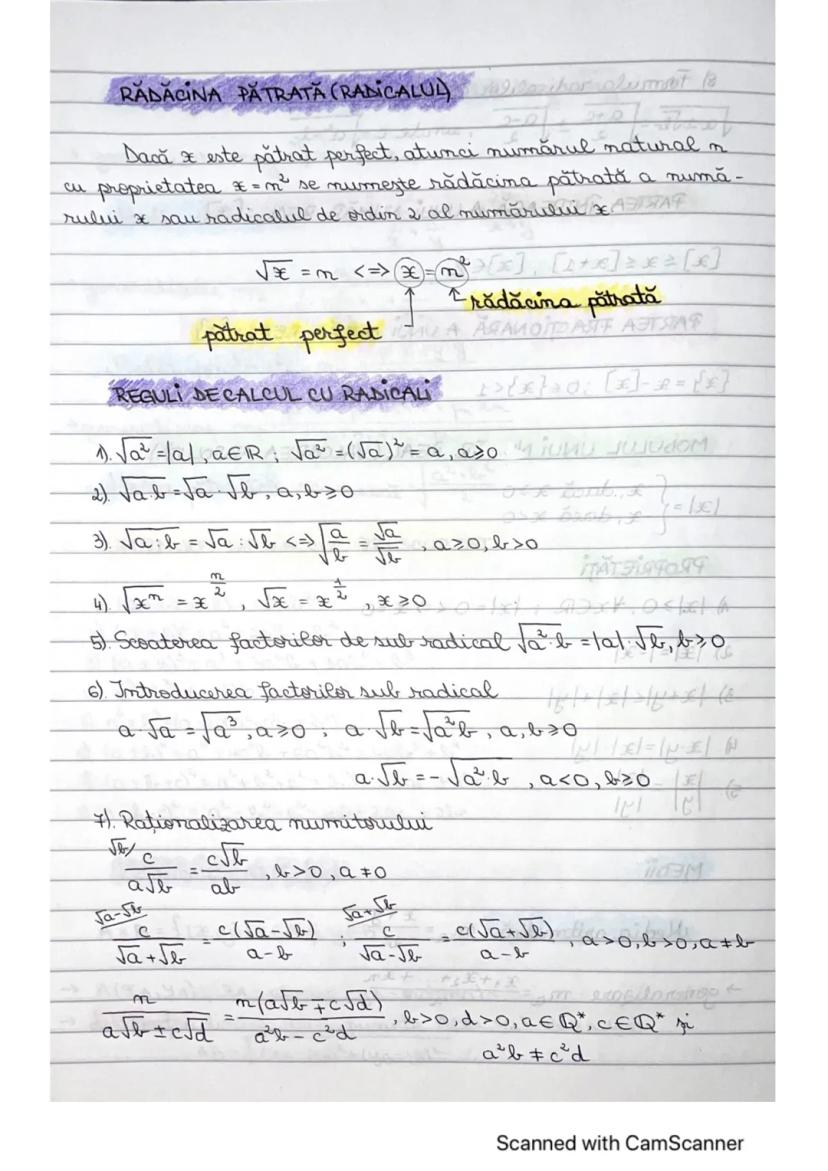 RĂDĂCINA PĂTRATĂ (RADICALUL)
Dacă x este pătrat perfect, atunci numărul natural n
cu proprietatea x = n² se numește rădăcina pătrată a numă-
rului x sau radicalul de ordin 2 al numărului x.
√x = n <=> x = n²
rădăcina pătrată
pătrat perfect
REGULI DE CALCUL CU RADICALI
1). √(a²) = |a|, a∈ℝ ; √(a²) = (√a)² = a, a⩾0
2). √(a·b) = √a · √b, a, b ⩾ 0
3). √(a:b) = √a : √b <=> √(a/b) = √a/√b, a⩾0, b>0
4). √(xⁿ) = x^(n/2), √x = x^(1/2), x⩾0
5). Scoaterea factorilor de sub radical √(a²·b) = |a|·√b, b⩾0
6). Introducerea factorilor sub radical
a·√a = √(a³), a⩾0 ; a·√b = √(a²b), a, b⩾0
a·√b = -√(a²·b), a<0, b⩾0
7). Raționalizarea numitorului
√b/ c/(a√b) = c√b/(ab), b>0, a≠0
√a-√b/ c/(√a+√b) = c(√a-√b)/(a-b) ; √a+√b/ c/(√a-√b) = c(√a+√b)/(a-b), a>0, b>0, a≠b
n/(a√b ± c√d) = n(a√b ∓ c√d)/(a²b - c²d), b>0, d>0, a∈ℚ*, c∈ℚ* și
a²b ≠ c²d
Scanned with CamScanner